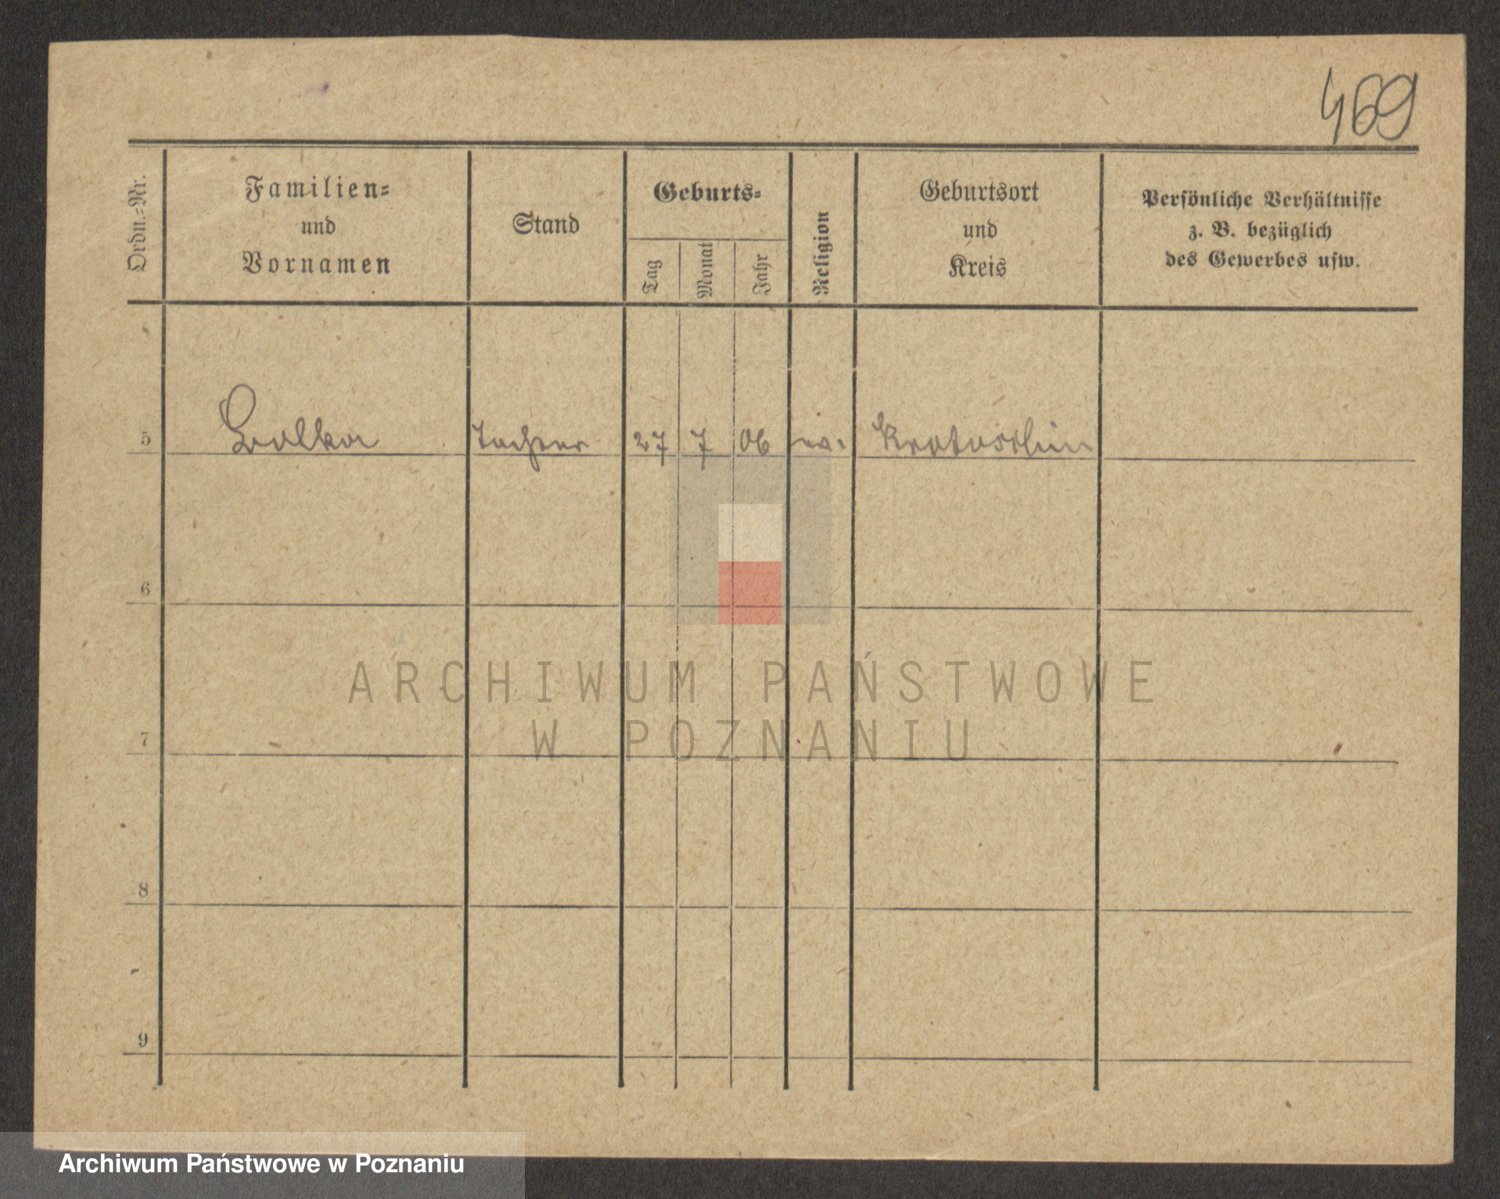 469
Ordn.=Nr.
Familien=
und
Vornamen
Stand
Geburts=
Tag
Monat
Jahr
Religion
Geburtsort
und
Kreis
Persönliche Verhältnisse
z. B. bezüglich
des Gewerbes usw.
5 Tochter 27 7 06 ev. Krotoschin
6
7
8
9
ARCHIWUM PAŃSTWOWE
W POZNANIU
Archiwum Państwowe w Poznaniu